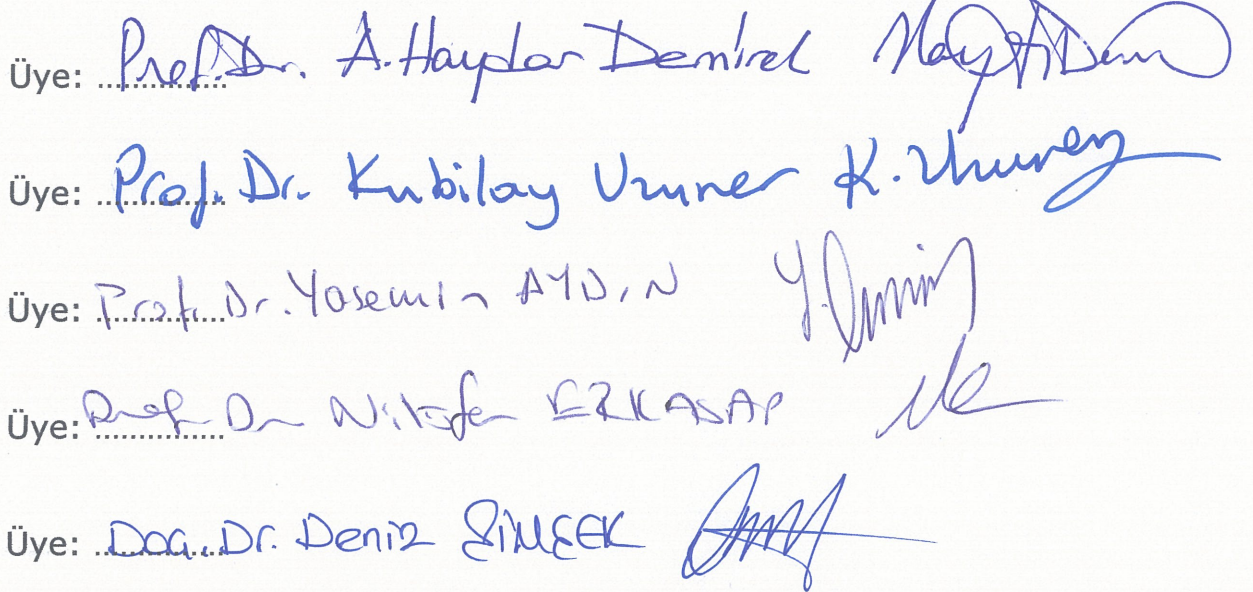 Üye: Prof. Dr. A. Haydar Demirel
Üye: Prof. Dr. Kubilay Uzuner K. Uzuner
Üye: Prof. Dr. Yasemin AYDIN
Üye: Prof. Dr. Nilüfer ERKASAP
Üye: Doç. Dr. Deniz ŞİMŞEK